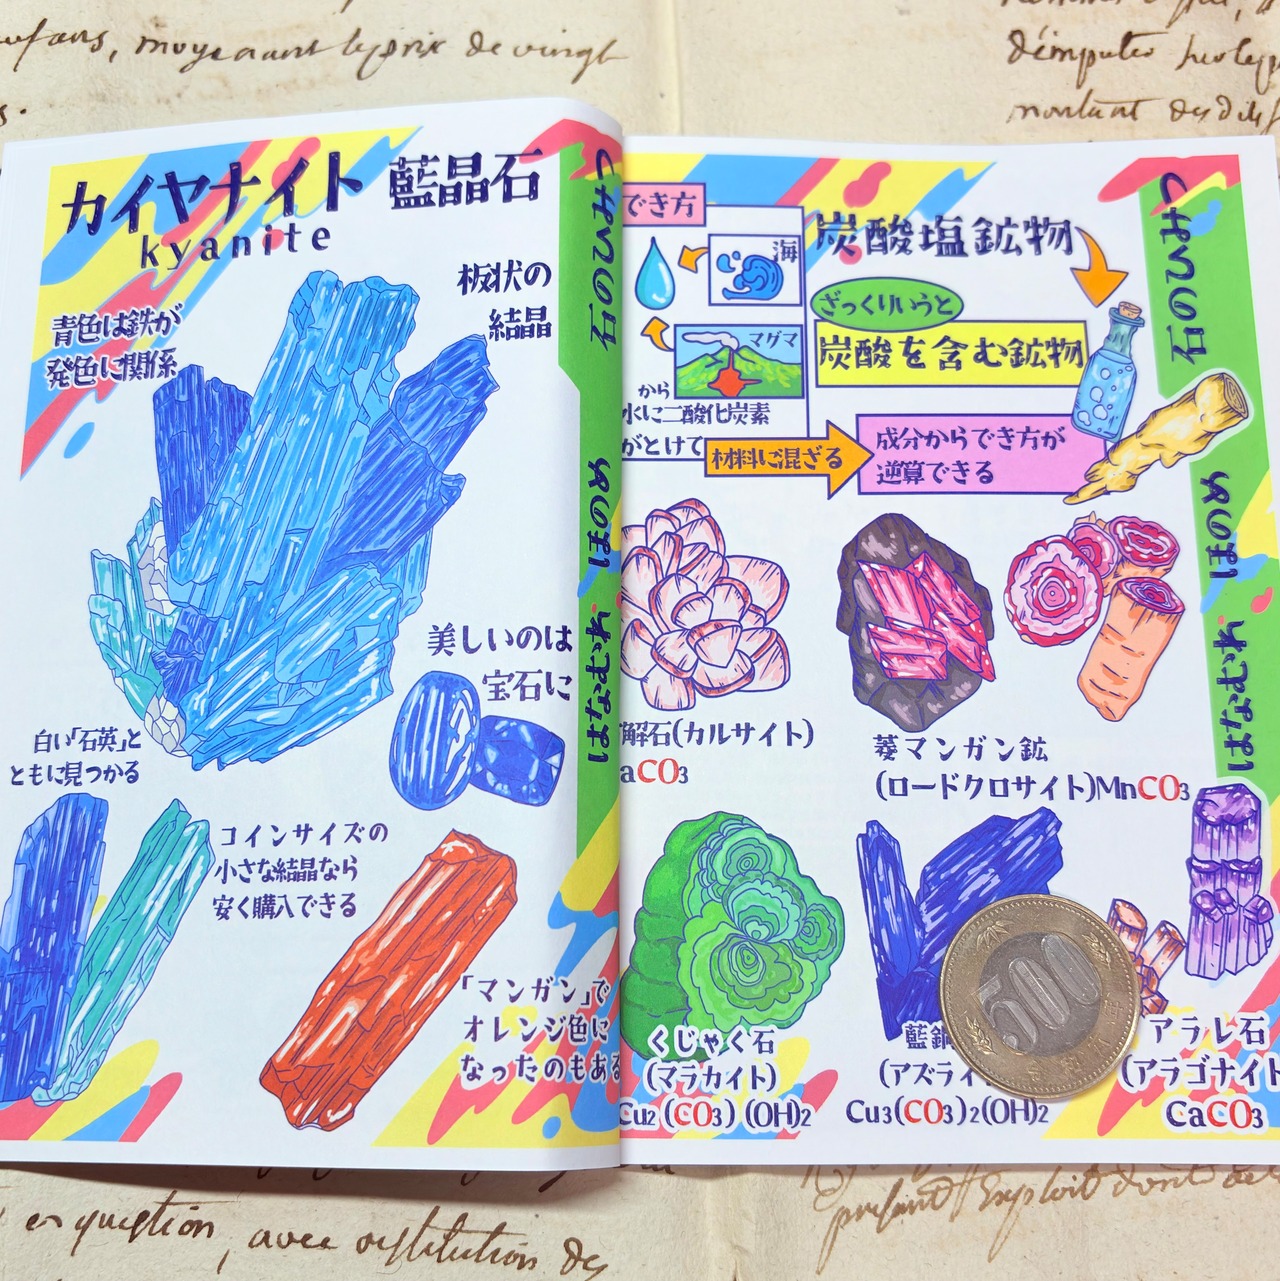 moyennant le prix de vingt
カイヤナイト 藍晶石
kyanite
板状の
結晶
青色は鉄が
発色に関係
美しいのは
宝石に
白い「石英」と
ともに見つかる
コインサイズの
小さな結晶なら
安く購入できる
「マンガン」で
オレンジ色に
なったのもある
つみひの石
めのほ
れむなは
でき方
海
マグマ
から
水に二酸化炭素
がとけて
材料に混ざる
炭酸塩鉱物
ざっくりいうと
炭酸を含む鉱物
成分からでき方が
逆算できる
解石(カルサイト)
aCO3
菱マンガン鉱
(ロードクロサイト)MnCO3
くじゃく石
(マラカイト)
Cu2(CO3)(OH)2
藍銅
(アズライ
Cu3(CO3)2(OH)2
500
アラレ石
(アラゴナイト
CaCO3
石のひみつ
ほのめ
はなむれ
en question, avec restitution des